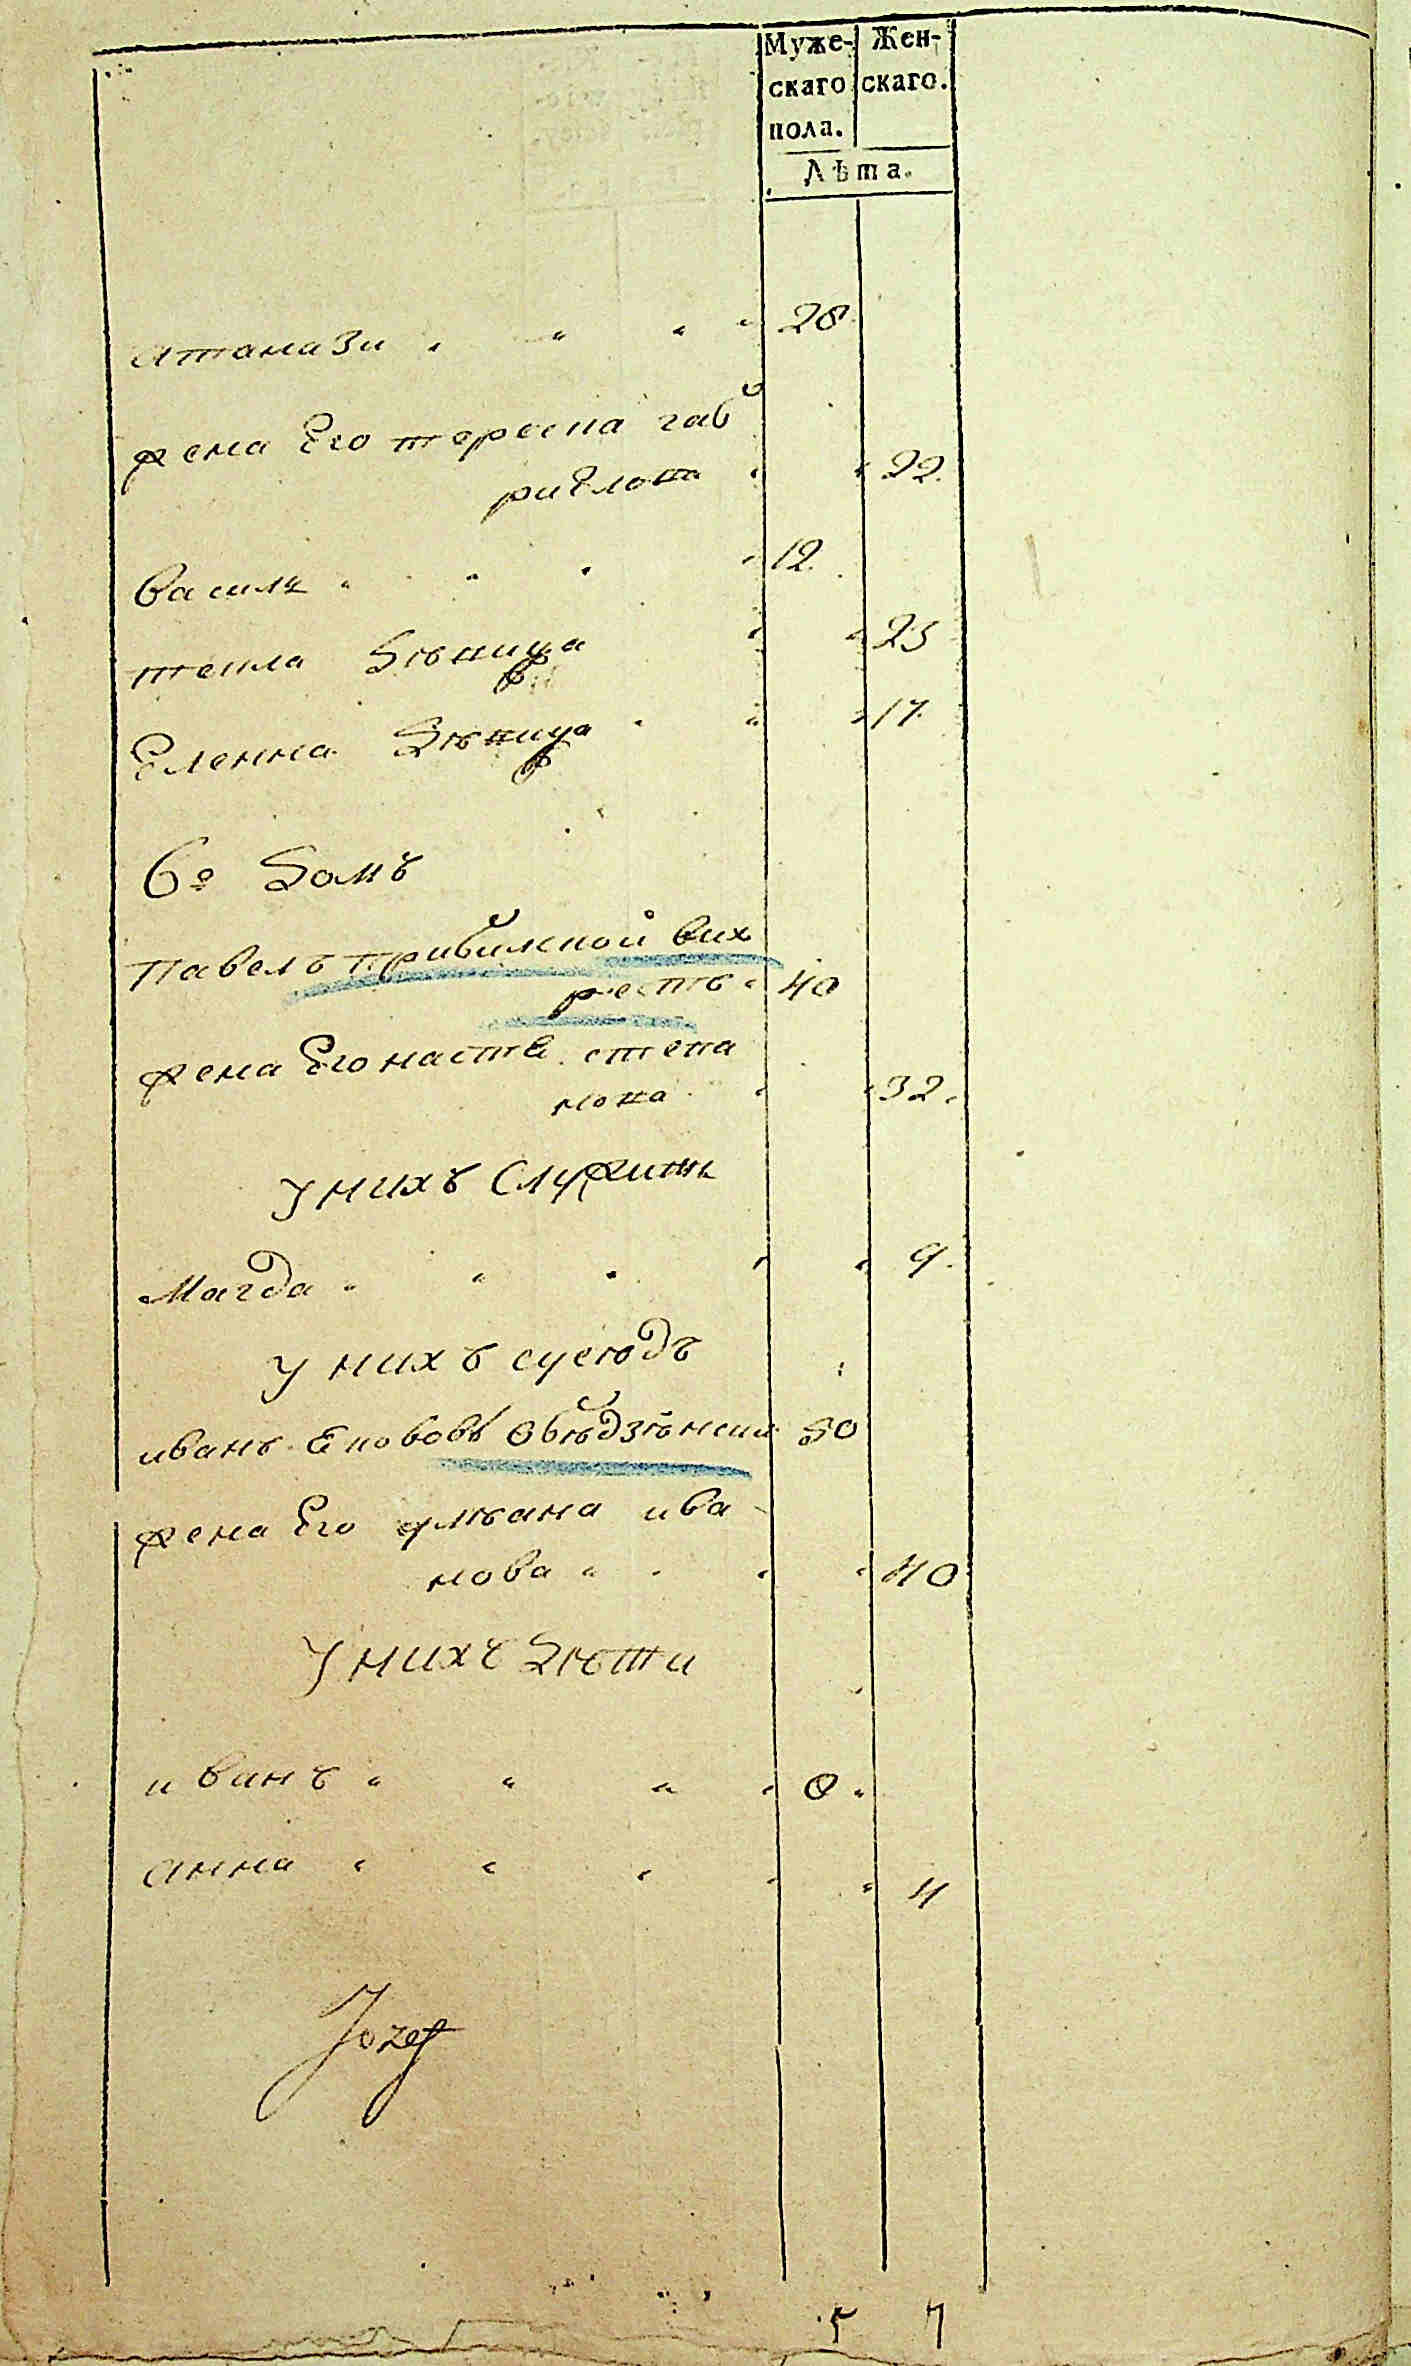 Муже- Жен-
скаго скаго.
пола.
Лѣта.
атанази 28
жена Его тереспа габ
риелова 22.
василь 12.
текла Дѣвица 25
Еленна Дѣвица 17.
6º Домъ
Павелъ Прибилской вих
рестъ 40
жена Его настѣ степа
нова 32.
У нихъ служитъ
Магда 9.
У нихъ сусѣдъ
иванъ 50
жена Его улѣана ива
нова 40
У нихъ Дѣти
иванъ 8
анна 4
Jozef
5 7